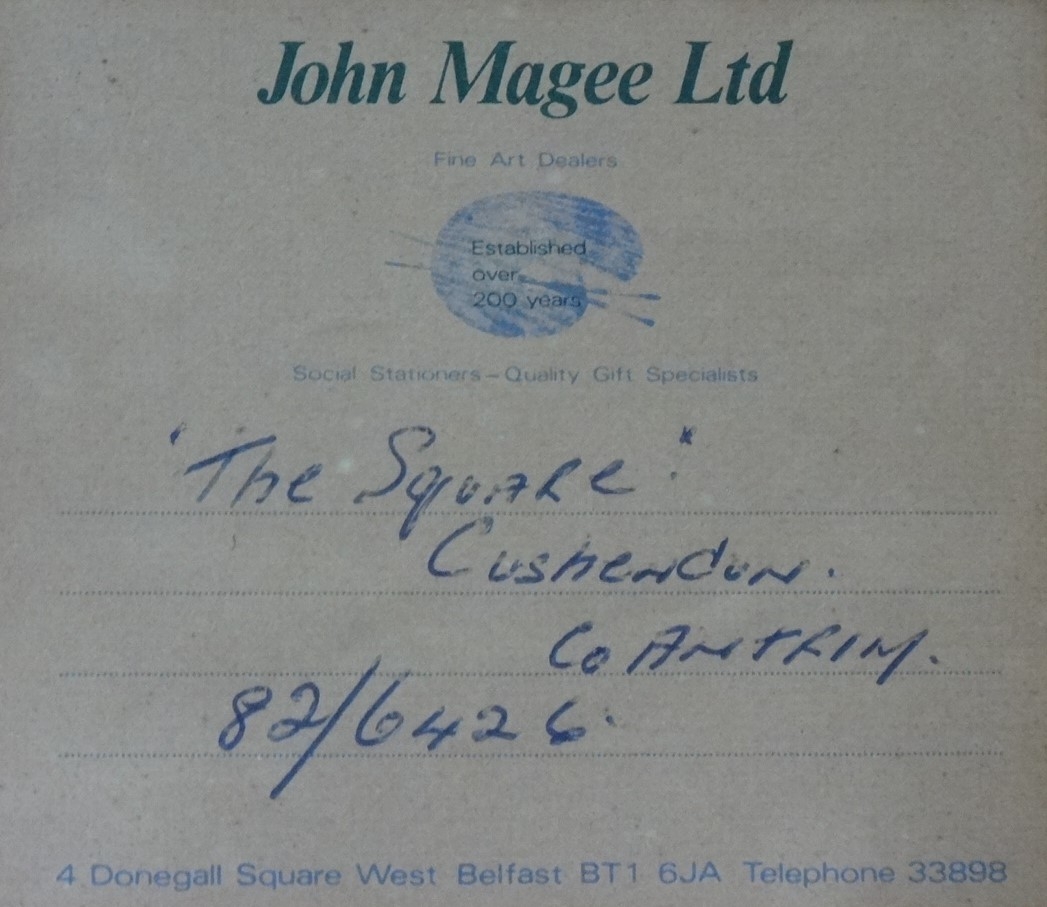 John Magee Ltd
Fine Art Dealers
Established
over
200 years
Social Stationers – Quality Gift Specialists
"The Square".
Cushendun.
Co Antrim.
82/6426.
4 Donegall Square West Belfast BT1 6JA Telephone 33898